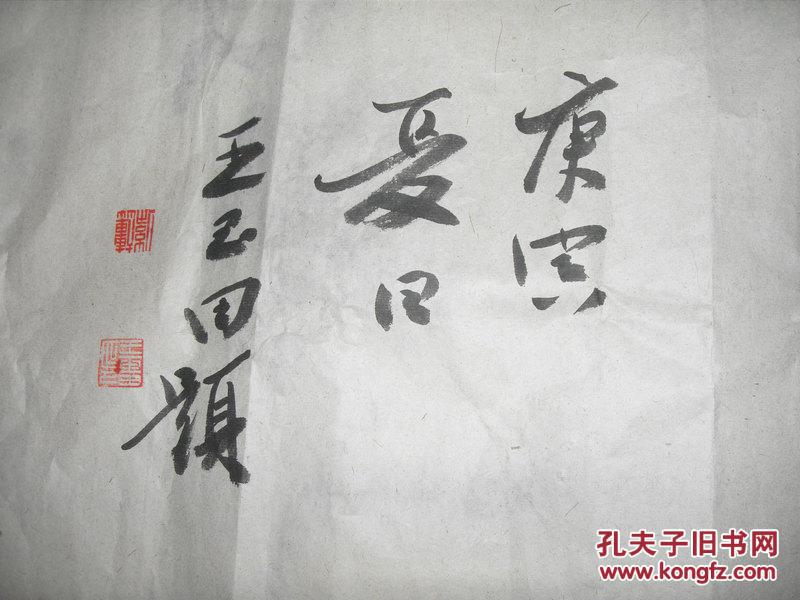 庚寅
夏日
王玉田题
孔夫子旧书网
www.kongfz.com